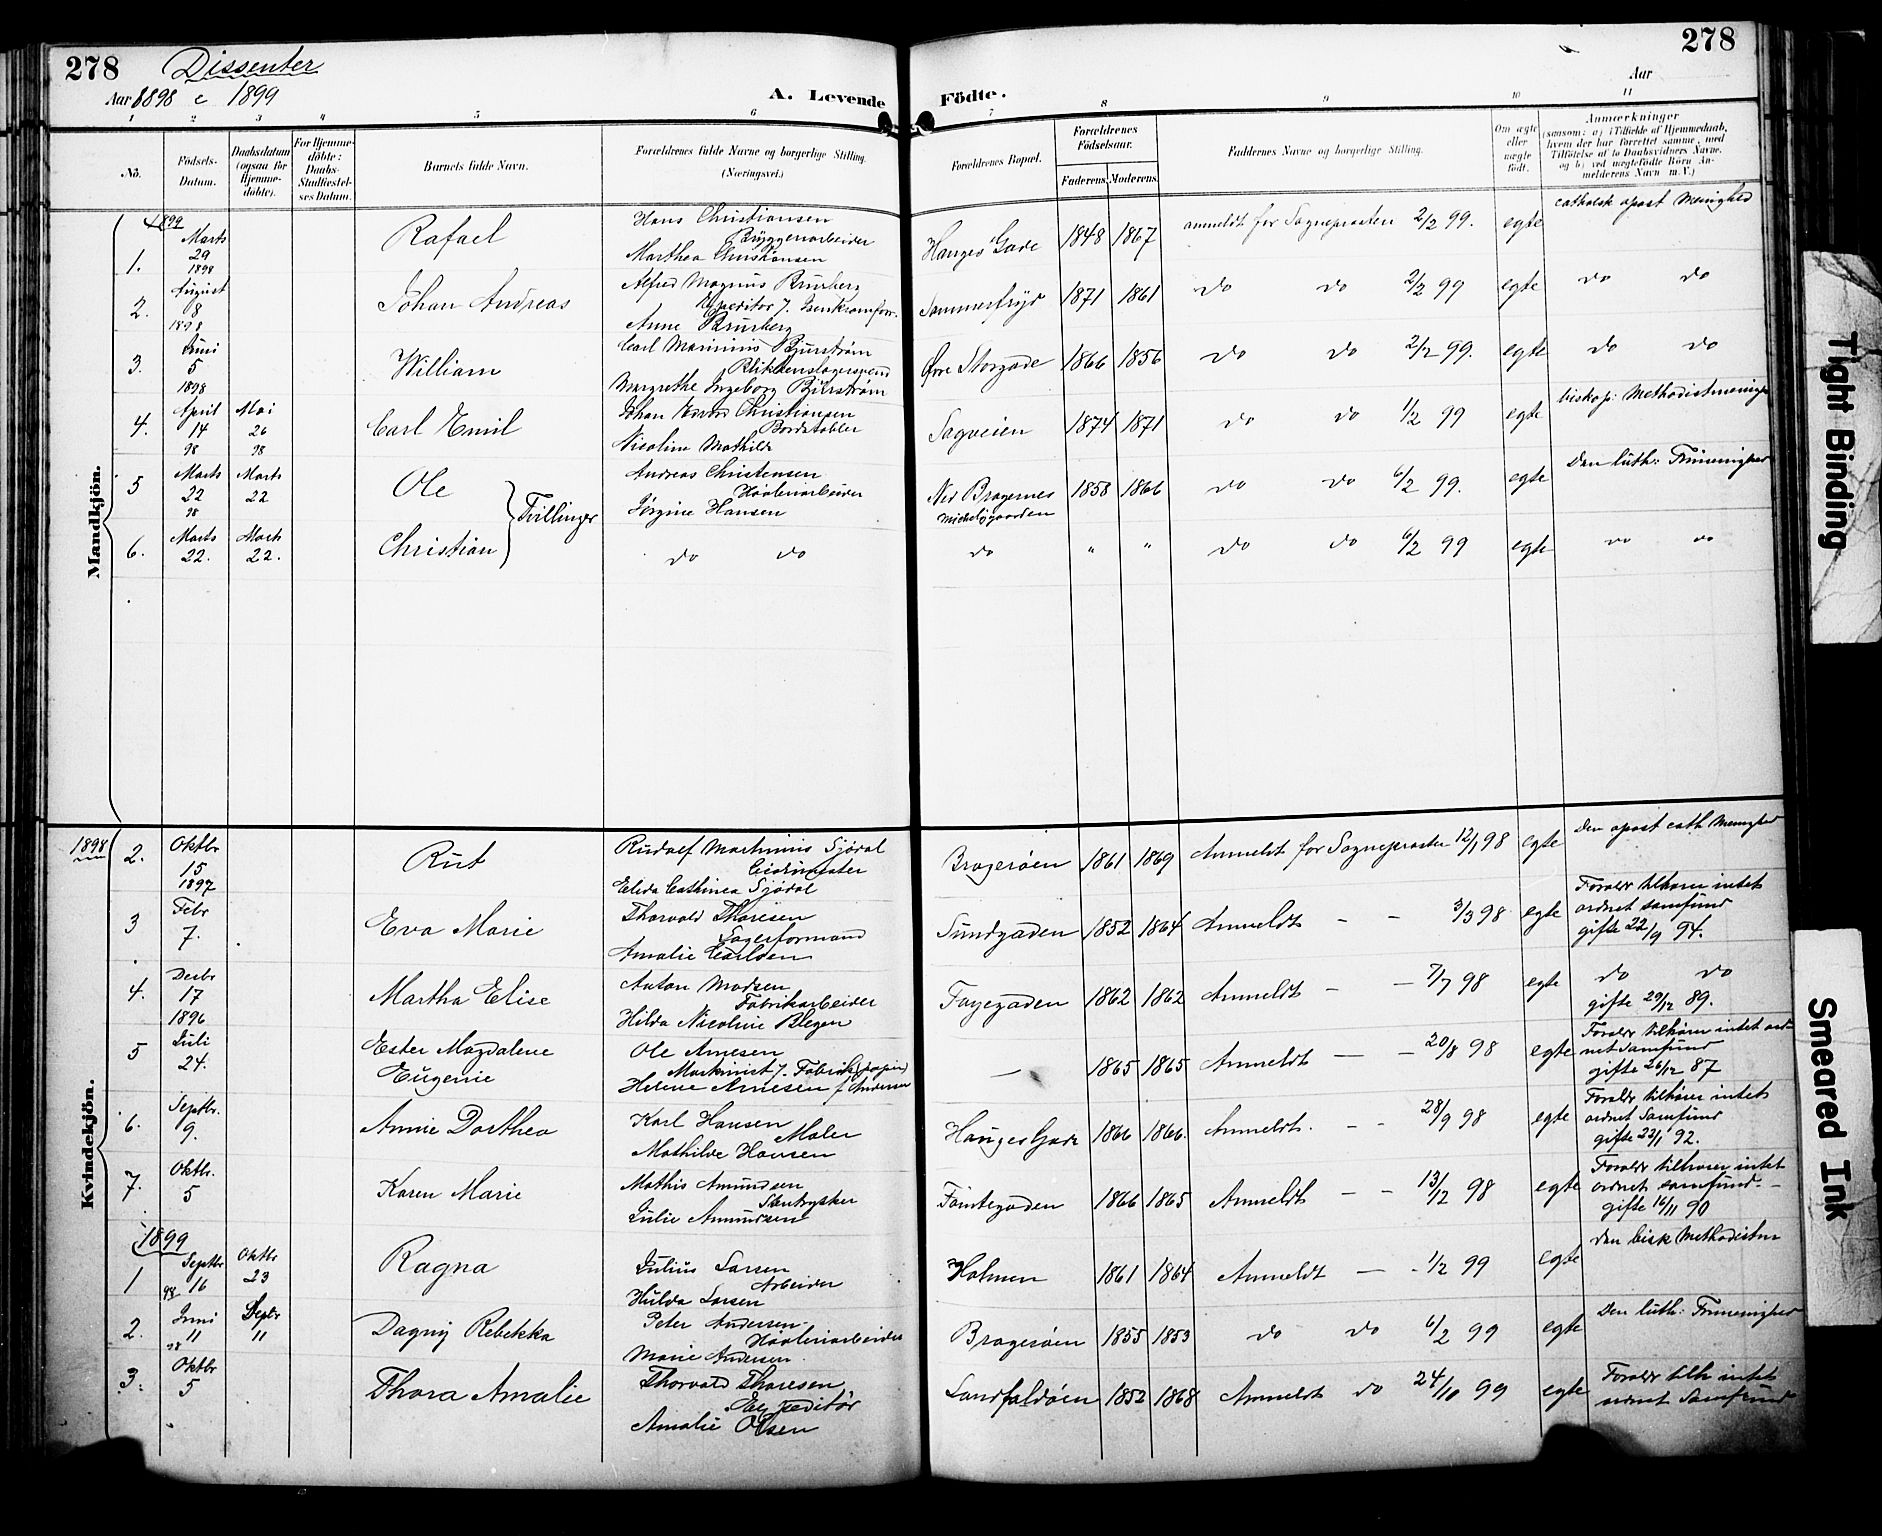 278 Dissenter 278
Aar 1898 e 1899 A. Levende Födte. Aar
1 2 3 4 5 6 7 8 9 10 11
No.
Födsels-Datum.
Daabsdatum (ogsaa for Hjemme-döbte).
For Hjemme-döbte: Daabs-Stadfæstel-ses Datum.
Barnets fulde Navn.
Forældrenes fulde Navne og borgerlige Stilling. (Næringsvei.)
Forældrenes Bopæl.
Forældrenes Födselsaar.
Faderens. Moderens.
Faddernes Navne og borgerlige Stilling.
Om ægte eller uægte födt.
Anmærkninger
(saasom: a) i Tilfælde af Hjemmedaab, hvem der har forrettet samme, med Tilföielse af to Daabsvidners Navne. og b) ved uægtefödte Börn Anmelderens Navn m. V.)
Mandkjön.
1899
1. Marts 29 1898 Rafael Hans Christiansen Bryggeriarbeider Marthea Christiansen Hauges Gade 1848 1867 anmeldt for Sognepresten 2/2 99. egte catholsk apost Menighed
2. August 8 1898 Johan Andreas Alfred Magnus Brunberg Anne Brunberg Sommerfryd 1871 1861 do do 2/2 99 egte do do
3. Juni 5 1898 William Carl Marinius Bjurstrøm Blikkenslagersvend Margrethe Ingeborg Bjurstrøm Øvre Storgade 1866 1856 do do 2/2 99. egte do do
4. April 14 98 Mai 26 98 Carl Emil Johan Edvard Christiansen Bordstabler Nicoline Mathilde Sagveien 1874 1871 do do 1/2 99 egte biskop: Methodistmenigh
5 Marts 22 98 Marts 22 Ole Andreas Christensen Høvleriarbeider Jørgine Hansen Ned Bragernes 1858 1866 do do 6/2 99. egte Den luth: Frimenighed
Tvillinger
6. Marts 22. Marts 22. Christian do do do " " do do 6/2 99 egte do do
Kvindekjön.
1898
2. Oktbr 15 1897 Rut Rudolf Martinius Sjødal Elida Cathinca Sjødal Bragerøen 1861 1869 Anmeldt for Sognepresten 12/1 98 egte Den apost cath Menighed
3 Febr 7. Eva Marie Thorvald Thoresen Lagerformand Amalie Carlsen Sundgaden 1852 1864 Anmeldt – – 3/3 98 egte Foraldr tilhører intet ordnet samfund gifte 22/9 94.
4. Decbr 17 1896 Martha Elise Anton Madsen Fabrikarbeider Hilda Nicoline Blegen Fayegaden 1862 1862 Anmeldt – – 7/7 98 egte do do gifte 29/12 89.
5 Juli 24. Ester Magdalene Eugenie Ole Arnesen Maskinist v. Fabrik (papir) Helene Arnesen f Andersen — 1865 1865 Anmeldt – – 20/8 98 egte Foraldr tilhører intet ordnet samfund gifte 26/12 87
6. Septbr. 9. Annie Dorthea Karl Hansen Maler Mathilde Hansen Hauges Gade 1866 1866. Anmeldt. – – 28/9 98 egte Foraldr tilhører intet ordnet Samfund gifte 22/1 92.
7. Oktbr. 5 Karen Marie Mathis Amundsen Stentrykker Julie Amundsen Fointegaden 1866 1865 Anmeldt – – 13/12 98 egte Foraldr tilhører intet ordnet samfund. – gifte 16/11 90
1899
1 Septbr 98 16 Oktbr 23 Ragna Julius Larsen Arbeider Hulda Larsen Holmen 1861 1864 Anmeldt – – 1/2 99 egte Den bisk Methodistm
2. Juni 11 98 Septbr 11 Dagny Rebekka Peter Andersen Høvleriarbeider Marie Andersen Bragerøen 1855 1853 do do 6/2 99 egte Den luth: Frimenighed
3. Oktbr 5 Thora Amalie Thorvald Thoresen Expeditør Amalie Olsen Landfaldøen 1852 1868 Anmeldt do 24/10 99 egte Foraldr tilh intet ordnet Samfund
Tight Binding
Smeared Ink